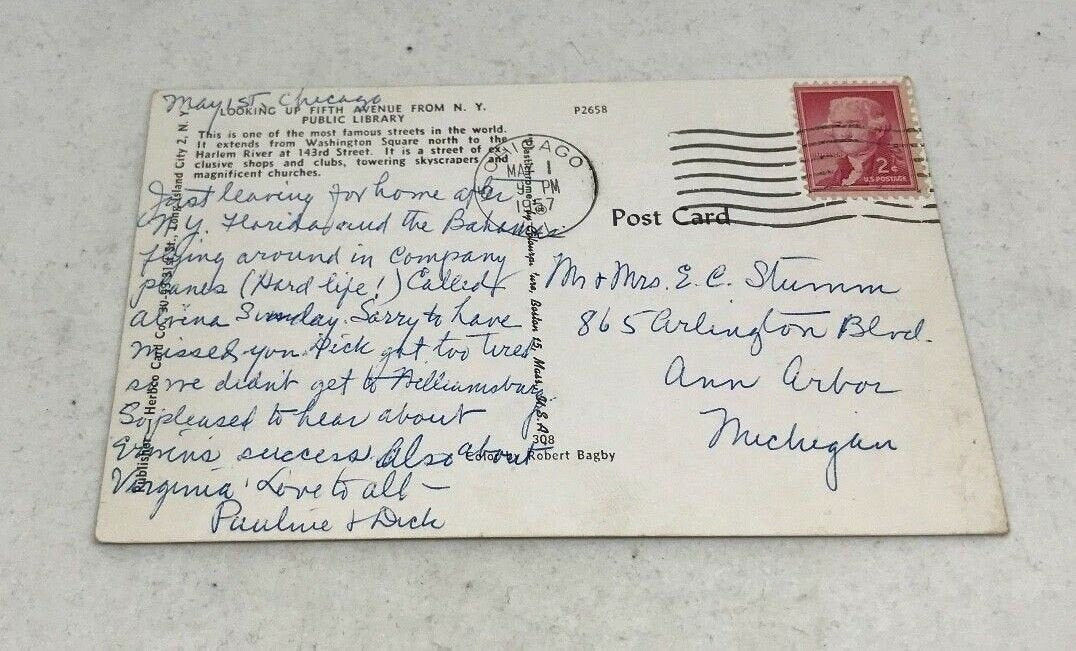 May 1st. Chicago
LOOKING UP FIFTH AVENUE FROM N. Y.
PUBLIC LIBRARY
This is one of the most famous streets in the world.
It extends from Washington Square north to the
Harlem River at 143rd Street. It is a street of ex-
clusive shops and clubs, towering skyscrapers and
magnificent churches.
P2658
Just leaving for home after
N.Y. Florida and the Bahamas
flying around in company
planes (Hard life!) Called
Alvina Sunday. Sorry to have
missed you. Dick got too tired
so we didn't get to Williamsburg
So pleased to hear about
Erwin's success Also about
Virginia. Love to all —
Pauline & Dick
Publisher — Herbco Card Co., 30-63 31st St., Long Island City 2, N. Y.
"Plastichrome" ® by Colourpicture, Boston 15, Mass., U.S.A.
308
Color by Robert Bagby
CHICAGO
MAY 1
9 PM
1957
2¢
U.S. POSTAGE
Post Card
Mr & Mrs. E. C. Stumm
865 Arlington Blvd.
Ann Arbor
Michigan